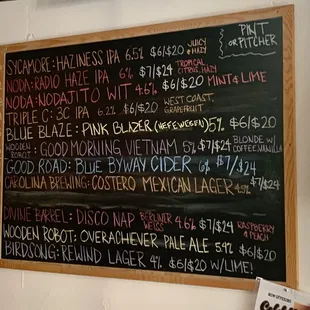 PINT
or PITCHER
SYCAMORE: HAZINESS IPA 6.5% $6/$20 JUICY & HAZY
NODA: RADIO HAZE IPA 6% $7/$24 TROPICAL CITRUS, HAZY
NODA: NODAJITO WIT 4.6% $6/$20 MINT & LIME
TRIPLE C: 3C IPA 6.2% $6/$20 WEST COAST, GRAPEFRUIT
BLUE BLAZE: PINK BLAZER (HEFEWEIZEN) 5% $6/$20
WOODEN ROBOT: GOOD MORNING VIETNAM 5% $7/$24 BLONDE W/ COFFEE VANILLA
GOOD ROAD: BLUE BYWAY CIDER 6% $7/$24
CAROLINA BREWING: COSTERO MEXICAN LAGER 4.5% $7/$24
DIVINE BARREL: DISCO NAP BERLINER WEISS 4.6% $7/$24 RASPBERRY & PEACH
WOODEN ROBOT: OVERACHIEVER PALE ALE 5.4% $6/$20
BIRDSONG: REWIND LAGER 4% $6/$20 W/LIME!
NOW OFFERING